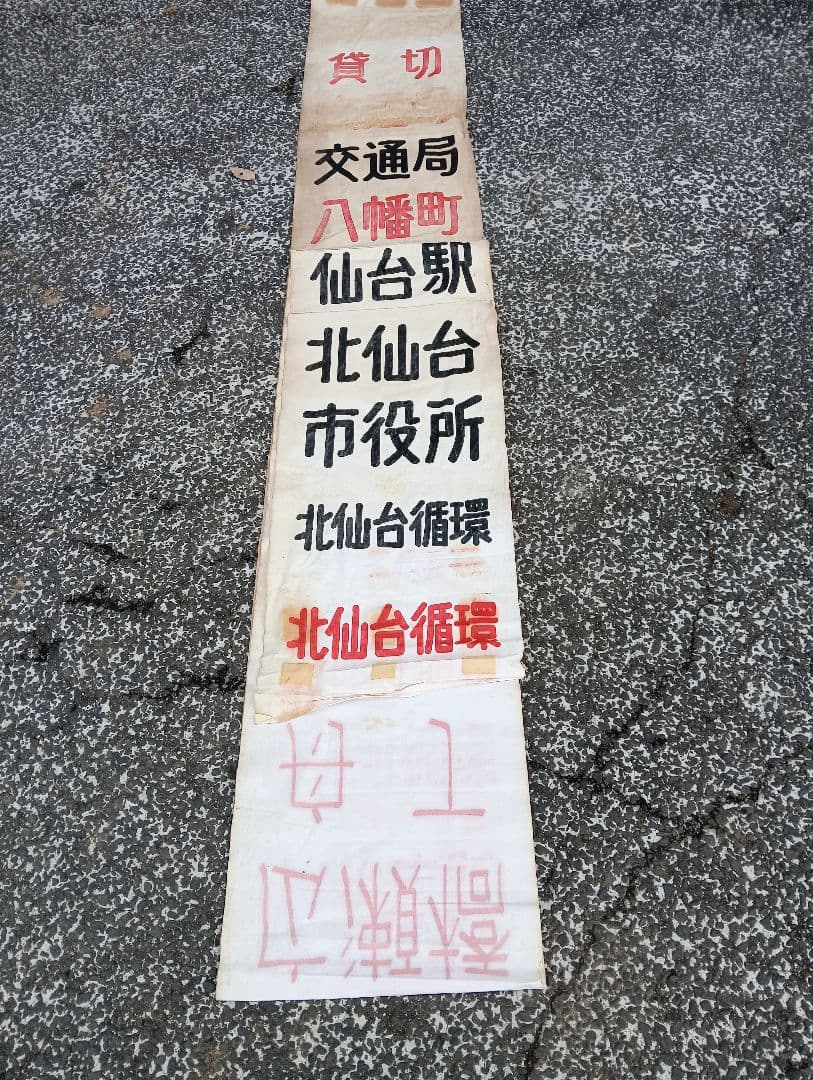 貸切
交通局
八幡町
仙台駅
北仙台
市役所
北仙台循環
北仙台循環
舟丁
広瀬橋